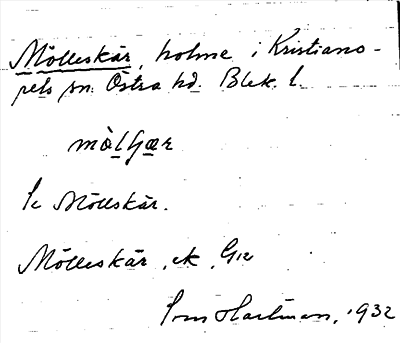 Mölleskär, holme i Kristiano-
pels sn. Östra hd. Blek. l.
Se Möllskär.
Mölleskär, ek, G12
Sven Hartman, 1932